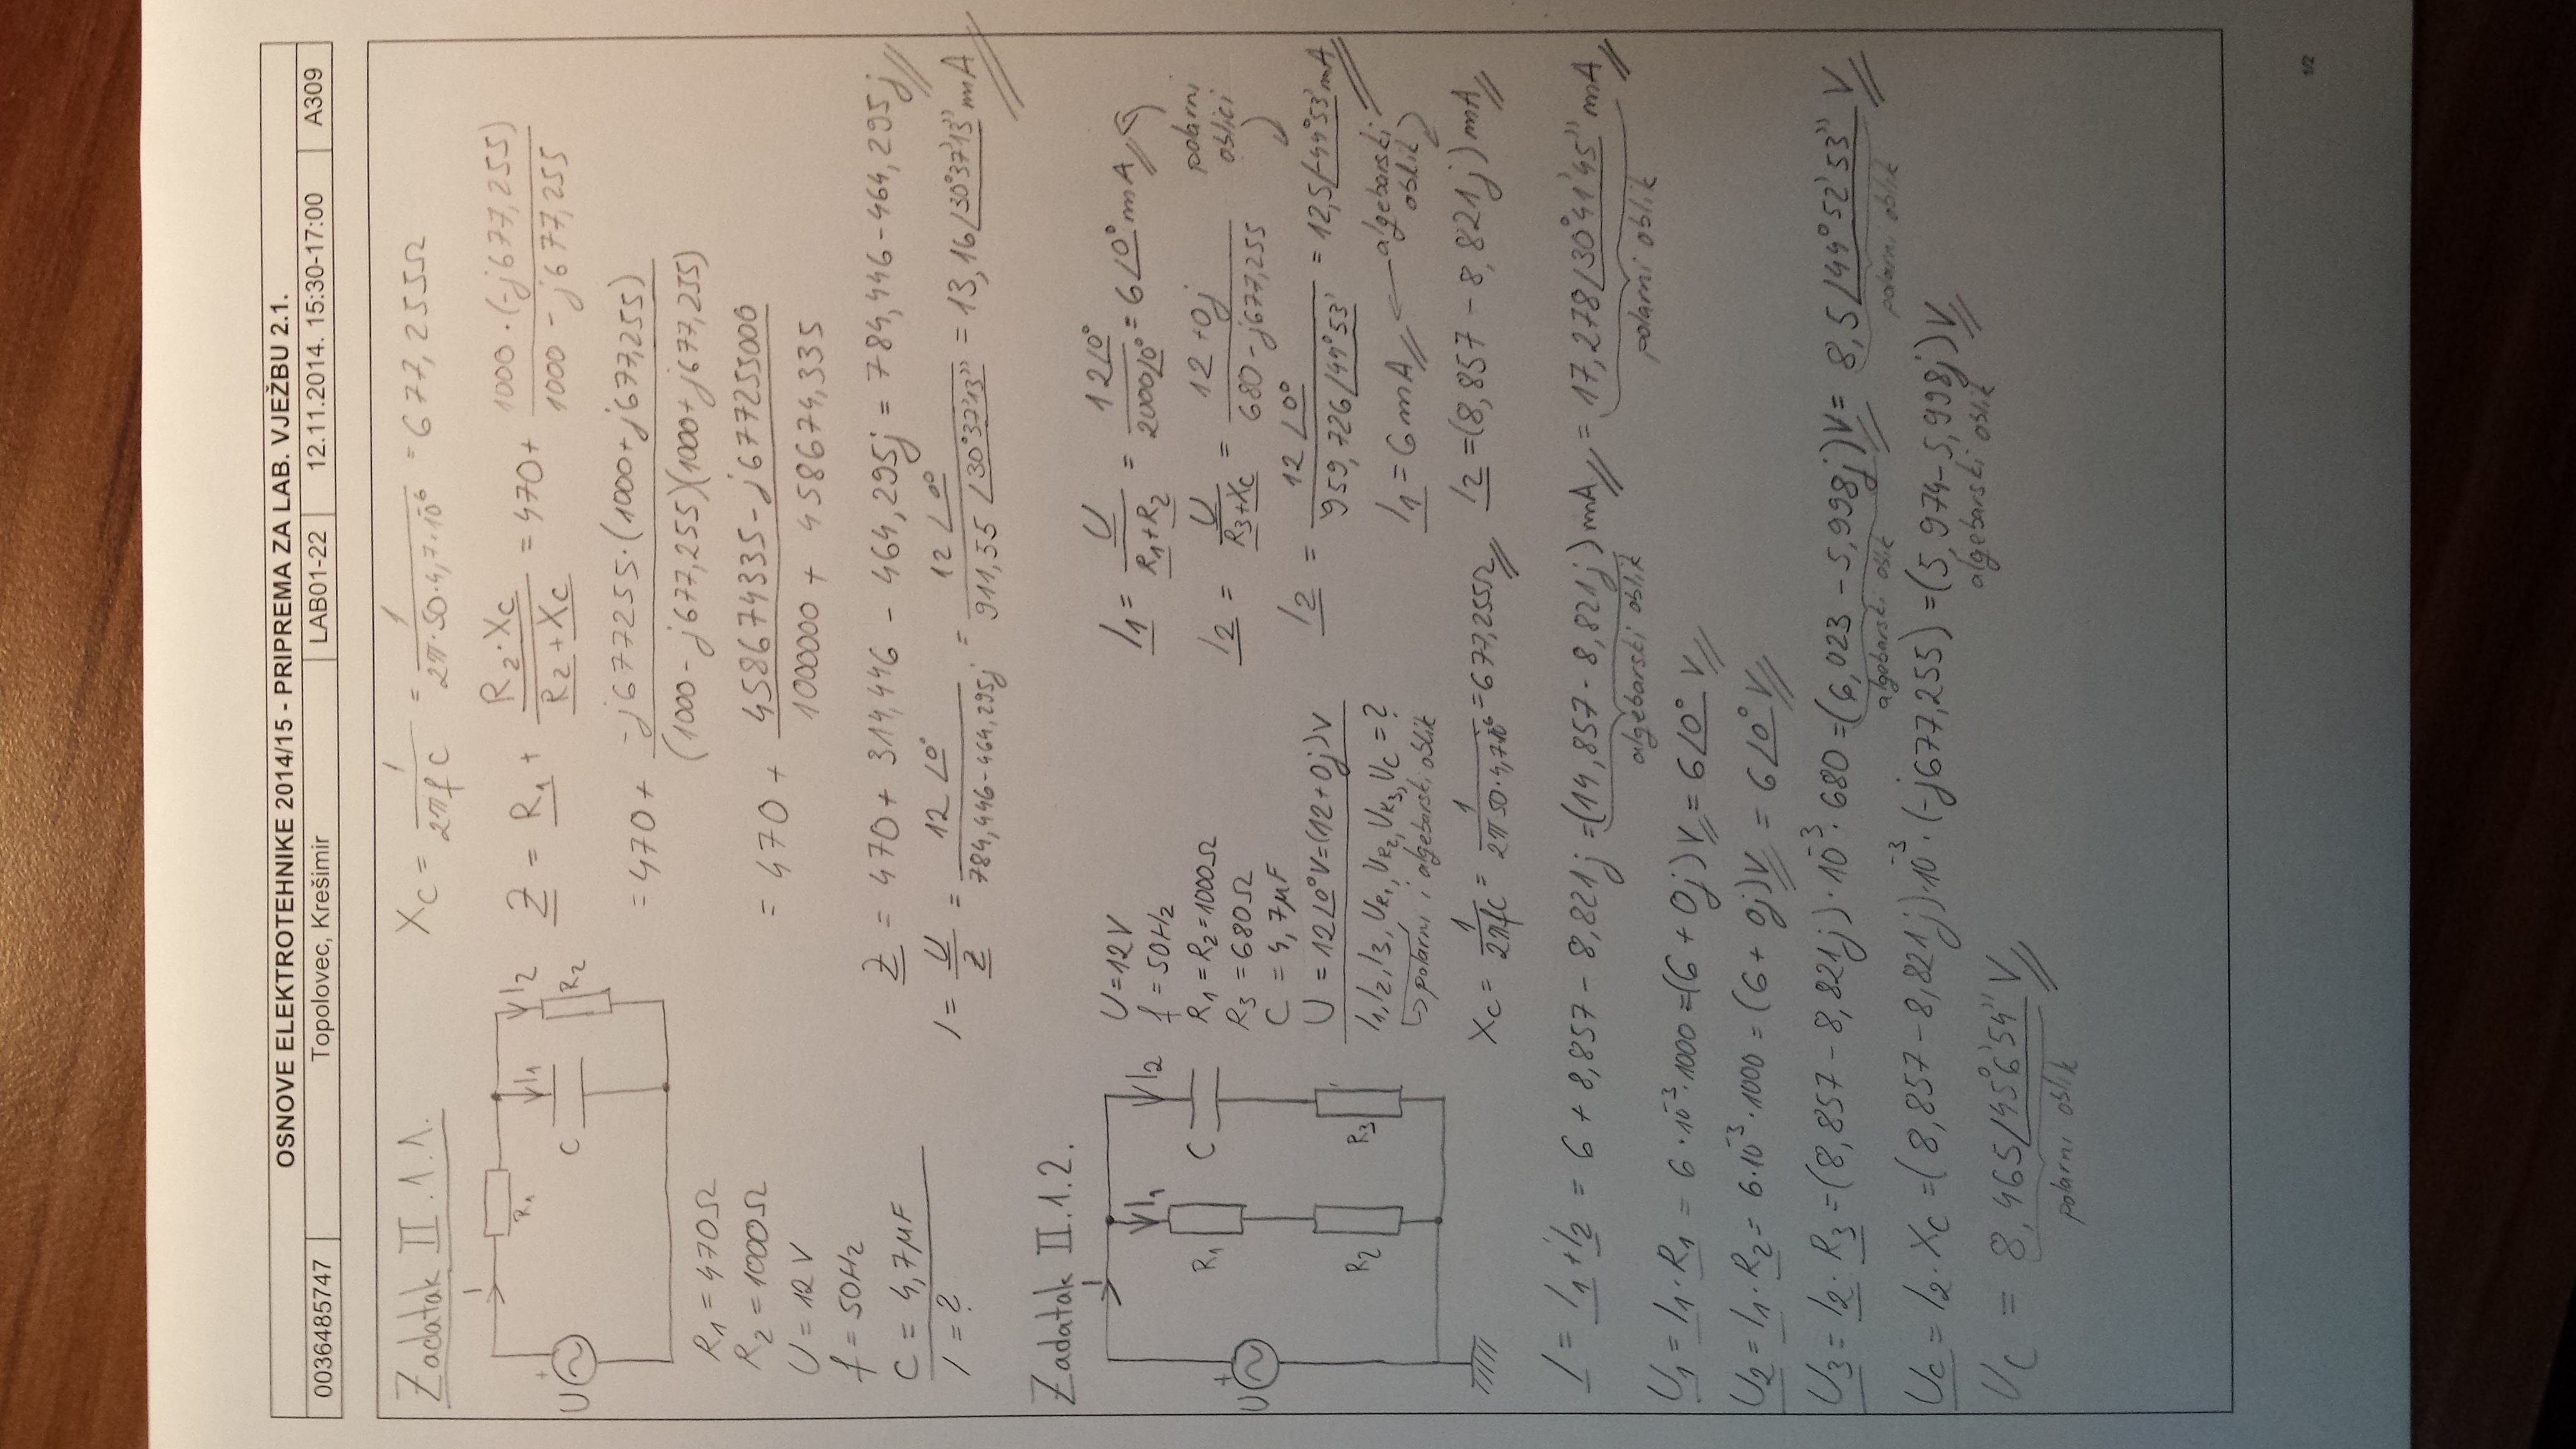 OSNOVE ELEKTROTEHNIKE 2014/15 - PRIPREMA ZA LAB. VJEŽBU 2.1.
0036485747 Topolovec, Krešimir LAB01-22 12.11.2014. 15:30-17:00 A309
Zadatak II.1.1.
U + I R1 C I1 I2 R2
R1 = 470Ω
R2 = 1000Ω
U = 12V
f = 50Hz
C = 4,7μF
I = ?
Xc = 1/(2πfC) = 1/(2π·50·4,7·10^-6) = 677,255Ω
Z = R1 + (R2·Xc)/(R2+Xc) = 470 + (1000·(-j677,255))/(1000-j677,255)
= 470 + (-j677255·(1000+j677,255))/((1000-j677,255)(1000+j677,255))
= 470 + (458674335-j677255000)/(1000000 + 458674,335)
Z = 470 + 314,446 - 464,295j = 784,446-464,295j
I = U/Z = 12∠0°/(784,446-464,295j) = 12∠0°/(911,55∠30°37'13'') = 13,16∠30°37'13'' mA
Zadatak II.1.2.
U + I I1 R1 R2 I2 C R3
U = 12V
f = 50Hz
R1 = R2 = 1000Ω
R3 = 680Ω
C = 4,7μF
U = 12∠0°V = (12+0j)V
I1, I2, I3, UR1, UR2, UR3, UC = ?
↳ polarni i algebarski oblik
Xc = 1/(2πfC) = 1/(2π50·4,7·10^-6) = 677,255Ω
I1 = U/(R1+R2) = 12∠0°/(2000∠0°) = 6∠0° mA
I2 = U/(R3+Xc) = (12+0j)/(680-j677,255)
polarni
oblici
I2 = 12∠0°/(959,726∠44°53') = 12,5∠-44°53' mA
I1 = 6mA ← algebarski
oblik
I2 = (8,857 - 8,821j)mA
I = I1+I2 = 6 + 8,857 - 8,821j = (14,857 - 8,821j)mA = 17,278∠30°41'45'' mA
algebarski oblik polarni oblik
U1 = I1·R1 = 6·10^-3·1000 = (6 + 0j)V = 6∠0° V
U2 = I1·R2 = 6·10^-3·1000 = (6 + 0j)V = 6∠0° V
U3 = I2·R3 = (8,857 - 8,821j)·10^-3·680 = (6,023 - 5,998j)V = 8,5∠44°52'53'' V
algebarski oblik polarni oblik
Uc = I2·Xc = (8,857 - 8,821j)·10^-3·(-j677,255) = (5,974-5,998j)V
algebarski oblik
UC = 8,465∠45°6'54'' V
polarni oblik
1/2